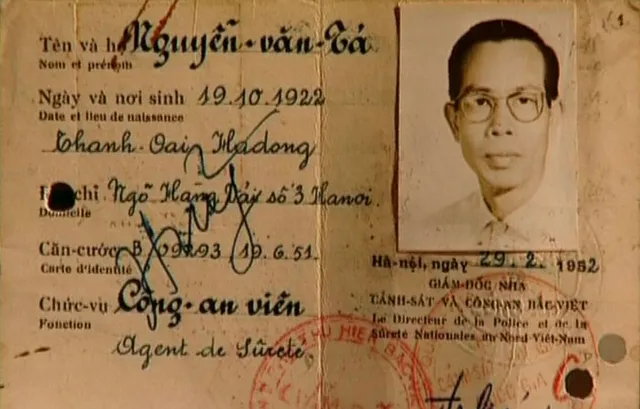 Tên và họ Nguyễn-văn-Tá
Nom et prénom
Ngày và nơi sinh 19.10.1922
Date et lieu de naissance
Thanh-Oai, Hadong
chỉ Ngõ Hàng Bảy số 3 Hanoi.
Domicile
Căn-cước B 09293 19.6.51.
Carte d'identité
Chức-vụ Công-an viên
Fonction
Agent de Sûreté.
1
Hà-nội, ngày 29.2.1952
GIÁM-ĐỐC NHA
CẢNH-SÁT VÀ CÔNG-AN BẮC-VIỆT
Le Directeur de la Police et de la
Sûreté Nationales du Nord Viêt-Nam